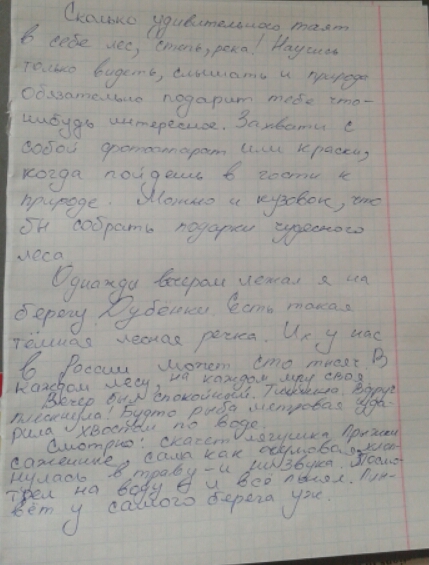 Сколько удивительного таят
в себе лес, степь, река! Научись
только видеть, слышать и природа
обязательно подарит тебе что-
нибудь интересное. Захвати с
собой фотоаппарат или краски,
когда пойдёшь в гости к
природе. Можно и кузовок, что
бы собрать подарки чудесного
леса.
Однажды вечером лежал я на
берегу Дубенки. Есть такая
тёмная лесная речка. Их у нас
в России может сто тысяч. В
каждом лесу, на каждом лугу своя.
Вечер был спокойный. Тишина. Вдруг
плеснуло! Будто рыба метровая уда-
рила хвостом по воде.
Смотрю: скачет лягушка. Прыжки
саженные, сама как
нулась в траву - и ни звука. Посмо-
трел на воду и я всё понял. Плы-
вёт у самого берега уж.